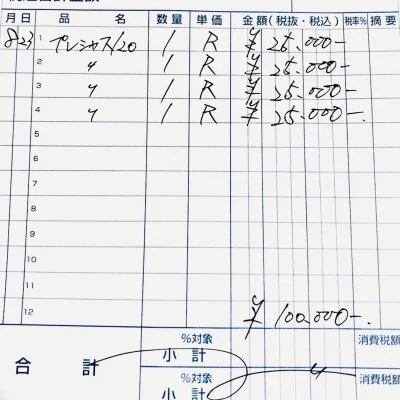 月 日 品 名 数量 単価 金額(税抜・税込) 税率% 摘要
8 23 1 プレシャス120 1 R ¥25.000-
2 〃 1 R ¥25.000-
3 〃 1 R ¥25.000-
4 〃 1 R ¥25.000-.
5
6
7
8
9
10
11
12 ¥100.000-.
%対象 消費税額
合 計 小 計
%対象 〃 消費税額
小 計